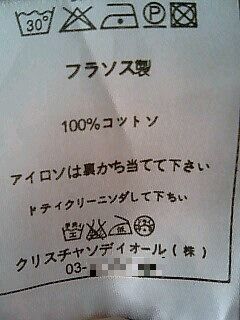 30°
P
フラソス製
100%コットソ
アイロソは裏かち当てて下さい
トティクリーニソダして下ちい
クリスチャソディオール(株)
03-